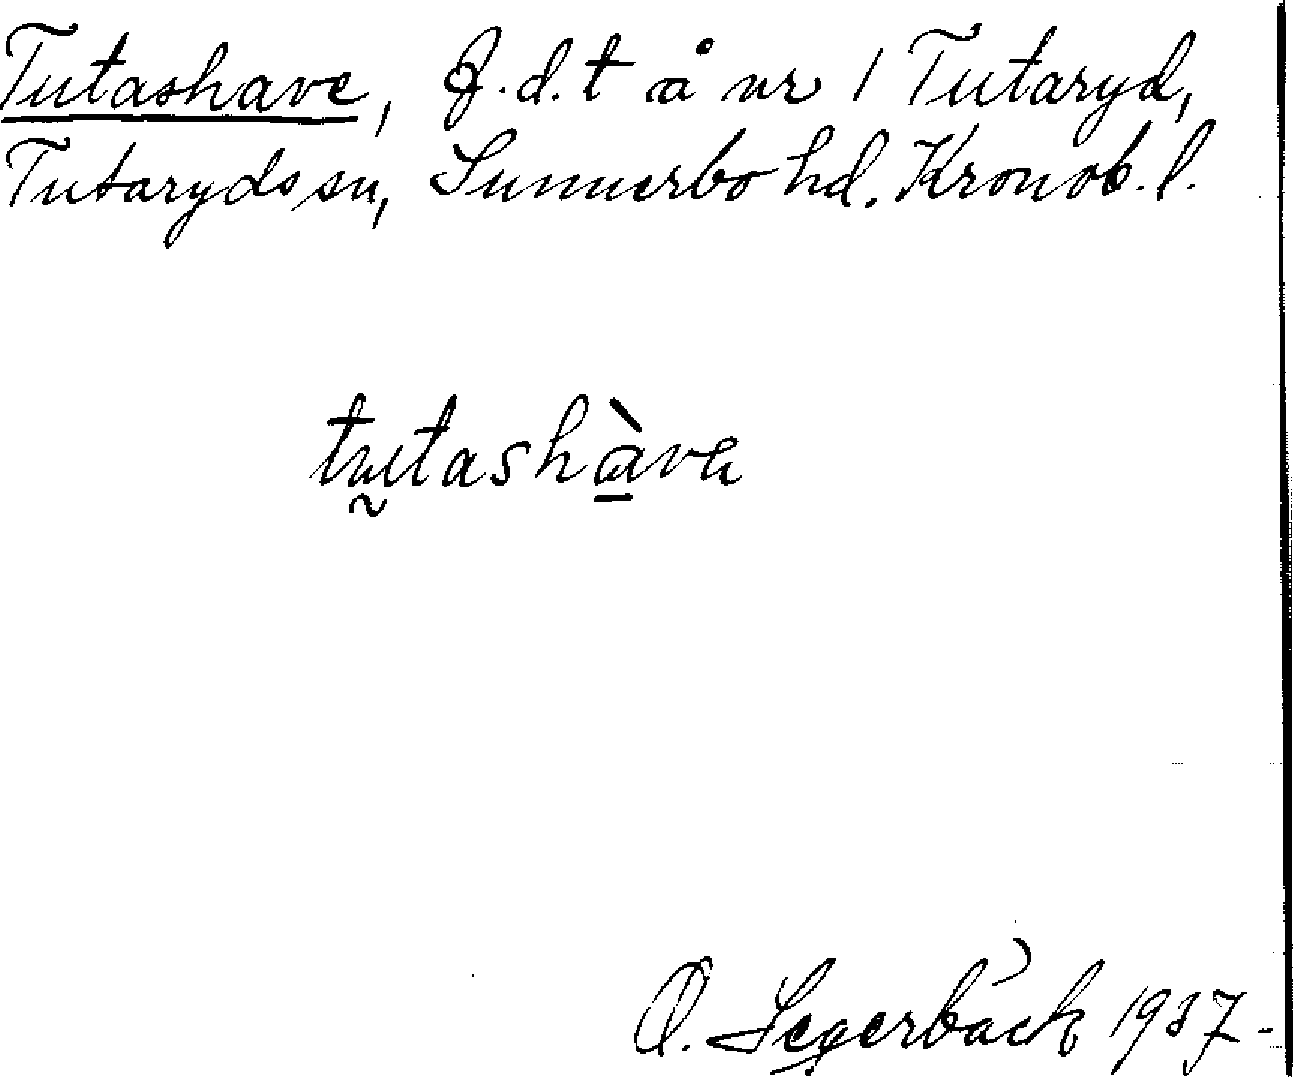 Tutashave, f.d.t å nr 1 Tutaryd,
Tutaryds sn, Sunnerbo hd. Kronob. l.
tutashàve
O. Segerbäck 1937-